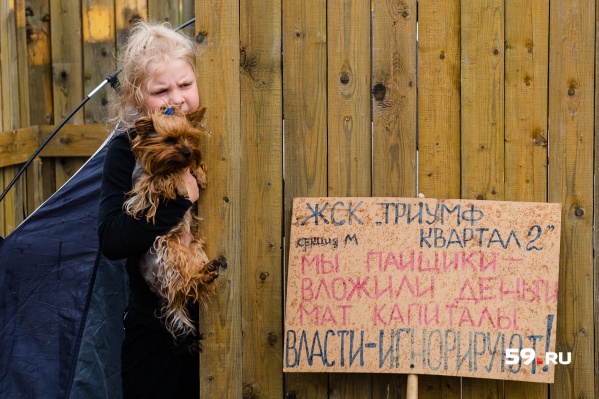 ЖСК „ТРИУМФ
секция М КВАРТАЛ 2"
МЫ ПАЙЩИКИ-
ВЛОЖИЛИ ДЕНЬГИ
МАТ КАПИТАЛЫ
ВЛАСТИ-ИГНОРИРУЮТ!
59.RU